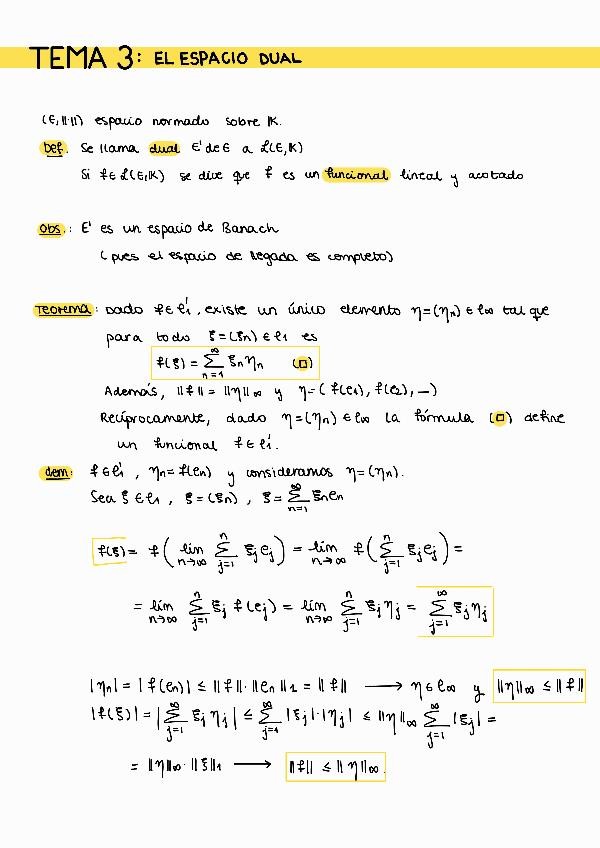 TEMA 3: EL ESPACIO DUAL
(E, ||·||) espacio normado sobre K.
Def. Se llama dual E' de E a L(E,K)
Si f ∈ L(E,K) se dice que f es un funcional lineal y acotado
Obs.: E' es un espacio de Banach
(pues el espacio de llegada es completo)
Teorema: Dado f ∈ ℓ₁', existe un único elemento η=(ηn) ∈ ℓ∞ tal que
para todo ξ=(ξn) ∈ ℓ₁ es
f(ξ) = ∑_{n=1}^{∞} ξn ηn (□)
Además, ||f|| = ||η||∞ y η=(f(e₁), f(e₂), ...)
Recíprocamente, dado η=(ηn) ∈ ℓ∞ la fórmula (□) define
un funcional f ∈ ℓ₁'.
dem: f ∈ ℓ₁', ηn = f(en) y consideramos η=(ηn).
Sea ξ ∈ ℓ₁, ξ=(ξn), ξ = ∑_{n=1}^{∞} ξn en
f(ξ) = f( lím_{n→∞} ∑_{j=1}^{n} ξj ej ) = lím_{n→∞} f( ∑_{j=1}^{n} ξj ej ) =
= lím_{n→∞} ∑_{j=1}^{n} ξj f(ej) = lím_{n→∞} ∑_{j=1}^{n} ξj ηj = ∑_{j=1}^{∞} ξj ηj
|ηn| = |f(en)| ≤ ||f||·||en||₁ = ||f|| ⟶ η ∈ ℓ∞ y ||η||∞ ≤ ||f||
|f(ξ)| = |∑_{j=1}^{∞} ξj ηj| ≤ ∑_{j=1}^{∞} |ξj|·|ηj| ≤ ||η||∞ ∑_{j=1}^{∞} |ξj| =
= ||η||∞·||ξ||₁ ⟶ ||f|| ≤ ||η||∞.